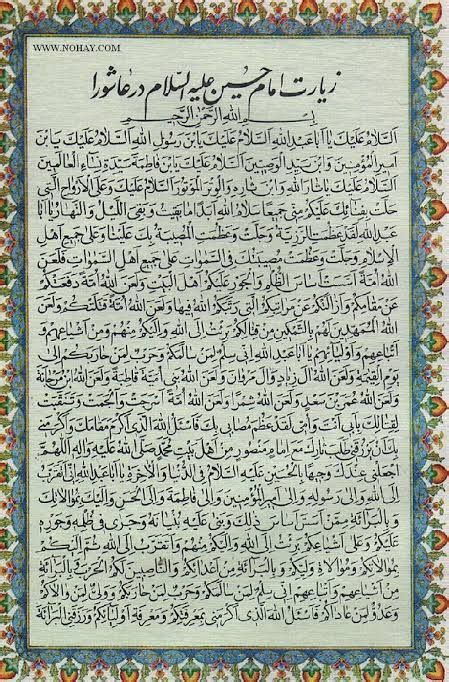 WWW.NOHAY.COM
زیارت امام حسین علیه السلام در عاشورا
بسم الله الرحمن الرحیم
اَلسَّلامُ عَلَيْكَ يا اَبا عَبْدِ اللهِ اَلسَّلامُ عَلَيْكَ يَا بْنَ رَسُولِ اللهِ اَلسَّلامُ عَلَيْكَ يَا بْنَ
اَميرِ الْمُؤْمِنينَ وَابْنَ سَيِّدِ الْوَصِيّينَ اَلسَّلامُ عَلَيْكَ يَا بْنَ فاطِمَةَ سَيِّدَةِ نِساءِ الْعالَمينَ
اَلسَّلامُ عَلَيْكَ يا ثارَ اللهِ وَابْنَ ثارِهِ وَالْوِتْرَ الْمَوْتُورَ اَلسَّلامُ عَلَيْكَ وَعَلَى الْاَرْواحِ الَّتي
حَلَّتْ بِفِنائِكَ عَلَيْكُمْ مِنّي جَميعًا سَلامُ اللهِ اَبَدًا ما بَقيتُ وَبَقِيَ اللَّيْلُ وَالنَّهارُ يا اَبا
عَبْدِ اللهِ لَقَدْ عَظُمَتِ الرَّزِيَّةُ وَجَلَّتْ وَعَظُمَتِ الْمُصيبَةُ بِكَ عَلَيْنا وَعَلى جَميعِ اَهْلِ
الْاِسْلامِ وَجَلَّتْ وَعَظُمَتْ مُصيبَتُكَ فِي السَّمواتِ عَلى جَميعِ اَهْلِ السَّمواتِ فَلَعَنَ
اللهُ اُمَّةً اَسَّسَتْ اَساسَ الظُّلْمِ وَالْجَوْرِ عَلَيْكُمْ اَهْلَ الْبَيْتِ وَلَعَنَ اللهُ اُمَّةً دَفَعَتْكُمْ
عَنْ مَقامِكُمْ وَاَزالَتْكُمْ عَنْ مَراتِبِكُمُ الَّتي رَتَّبَكُمُ اللهُ فيها وَلَعَنَ اللهُ اُمَّةً قَتَلَتْكُمْ وَلَعَنَ
اللهُ الْمُمَهِّدينَ لَهُمْ بِالتَّمْكينِ مِنْ قِتالِكُمْ بَرِئْتُ اِلَى اللهِ وَاِلَيْكُمْ مِنْهُمْ وَمِنْ اَشْياعِهِمْ وَ
اَتْباعِهِمْ وَاَوْلِيائِهِمْ يا اَبا عَبْدِ اللهِ اِنّي سِلْمٌ لِمَنْ سالَمَكُمْ وَحَرْبٌ لِمَنْ حارَبَكُمْ اِلى
يَوْمِ الْقِيمَةِ وَلَعَنَ اللهُ آلَ زِيادٍ وَآلَ مَرْوانَ وَلَعَنَ اللهُ بَني اُمَيَّةَ قاطِبَةً وَلَعَنَ اللهُ ابْنَ مَرْجانَةَ
وَلَعَنَ اللهُ عُمَرَ بْنَ سَعْدٍ وَلَعَنَ اللهُ شِمْرًا وَلَعَنَ اللهُ اُمَّةً اَسْرَجَتْ وَاَلْجَمَتْ وَتَنَقَّبَتْ
لِقِتالِكَ بِاَبي اَنْتَ وَاُمّي لَقَدْ عَظُمَ مُصابي بِكَ فَاَسْئَلُ اللهَ الَّذي اَكْرَمَ مَقامَكَ وَاَكْرَمَني
بِكَ اَنْ يَرْزُقَني طَلَبَ ثارِكَ مَعَ اِمامٍ مَنْصُورٍ مِنْ اَهْلِ بَيْتِ مُحَمَّدٍ صَلَّى اللهُ عَلَيْهِ وَآلِهِ اَللّهُمَّ
اجْعَلْني عِنْدَكَ وَجيهًا بِالْحُسَيْنِ عَلَيْهِ السَّلامُ فِي الدُّنْيا وَالْاخِرَةِ يا اَبا عَبْدِ اللهِ اِنّي اَتَقَرَّبُ
اِلَى اللهِ وَاِلى رَسُولِهِ وَاِلى اَميرِ الْمُؤْمِنينَ وَاِلى فاطِمَةَ وَاِلَى الْحَسَنِ وَاِلَيْكَ بِمُوالاتِكَ
وَبِالْبَرائَةِ مِمَّنْ اَسَّسَ اَساسَ ذلِكَ وَبَنى عَلَيْهِ بُنْيانَهُ وَجَرى في ظُلْمِهِ وَجَوْرِهِ
عَلَيْكُمْ وَعَلى اَشْياعِكُمْ بَرِئْتُ اِلَى اللهِ وَاِلَيْكُمْ مِنْهُمْ وَاَتَقَرَّبُ اِلَى اللهِ ثُمَّ اِلَيْكُمْ
بِمُوالاتِكُمْ وَمُوالاةِ وَلِيِّكُمْ وَبِالْبَرائَةِ مِنْ اَعْدائِكُمْ وَالنّاصِبينَ لَكُمُ الْحَرْبَ وَبِالْبَرائَةِ
مِنْ اَشْياعِهِمْ وَاَتْباعِهِمْ اِنّي سِلْمٌ لِمَنْ سالَمَكُمْ وَحَرْبٌ لِمَنْ حارَبَكُمْ وَوَلِيٌّ لِمَنْ والاكُمْ
وَعَدُوٌّ لِمَنْ عاداكُمْ فَاَسْئَلُ اللهَ الَّذي اَكْرَمَني بِمَعْرِفَتِكُمْ وَمَعْرِفَةِ اَوْلِيائِكُمْ وَرَزَقَنِي الْبَرائَةَ